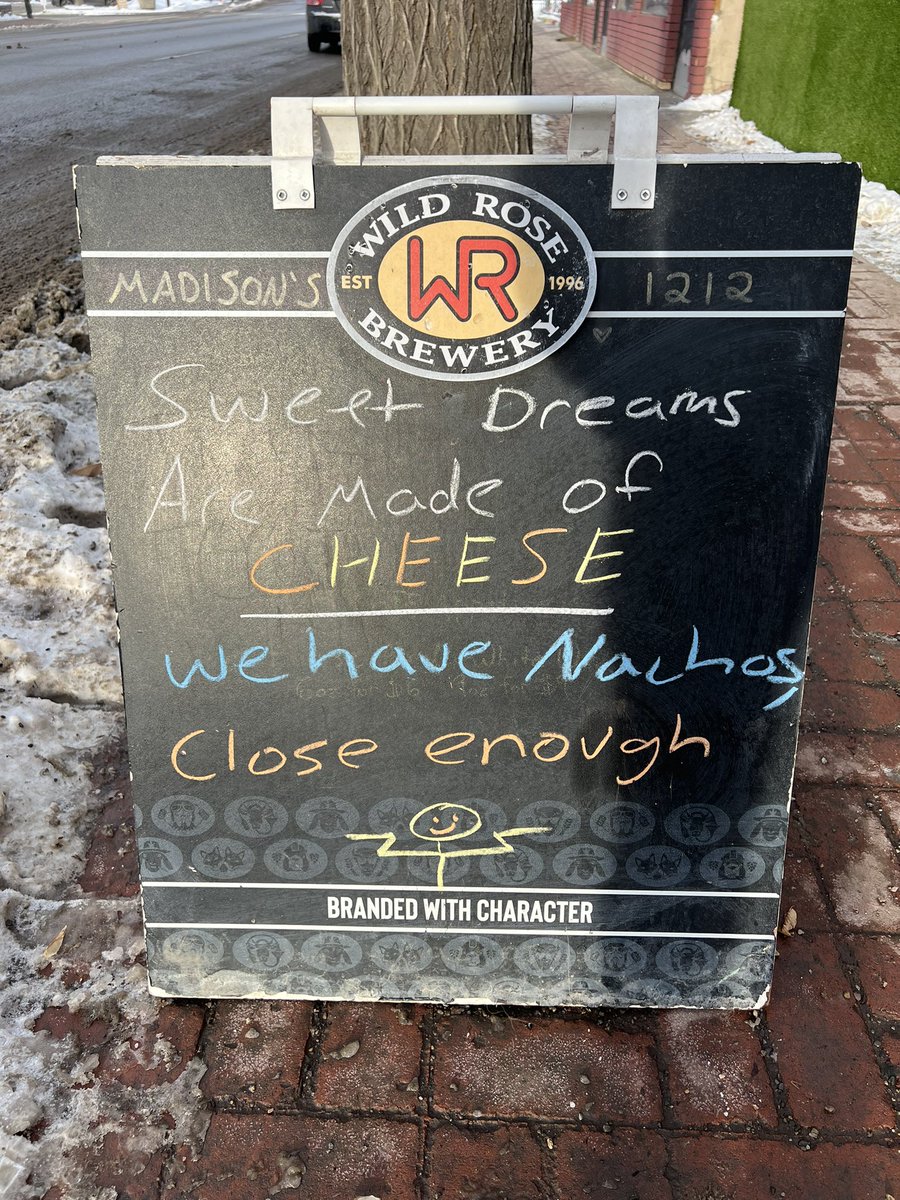 WILD ROSE
EST WR 1996
BREWERY
MADISON'S 1212
Sweet Dreams
Are Made of
CHEESE
we have Nachos,
Close enough
BRANDED WITH CHARACTER